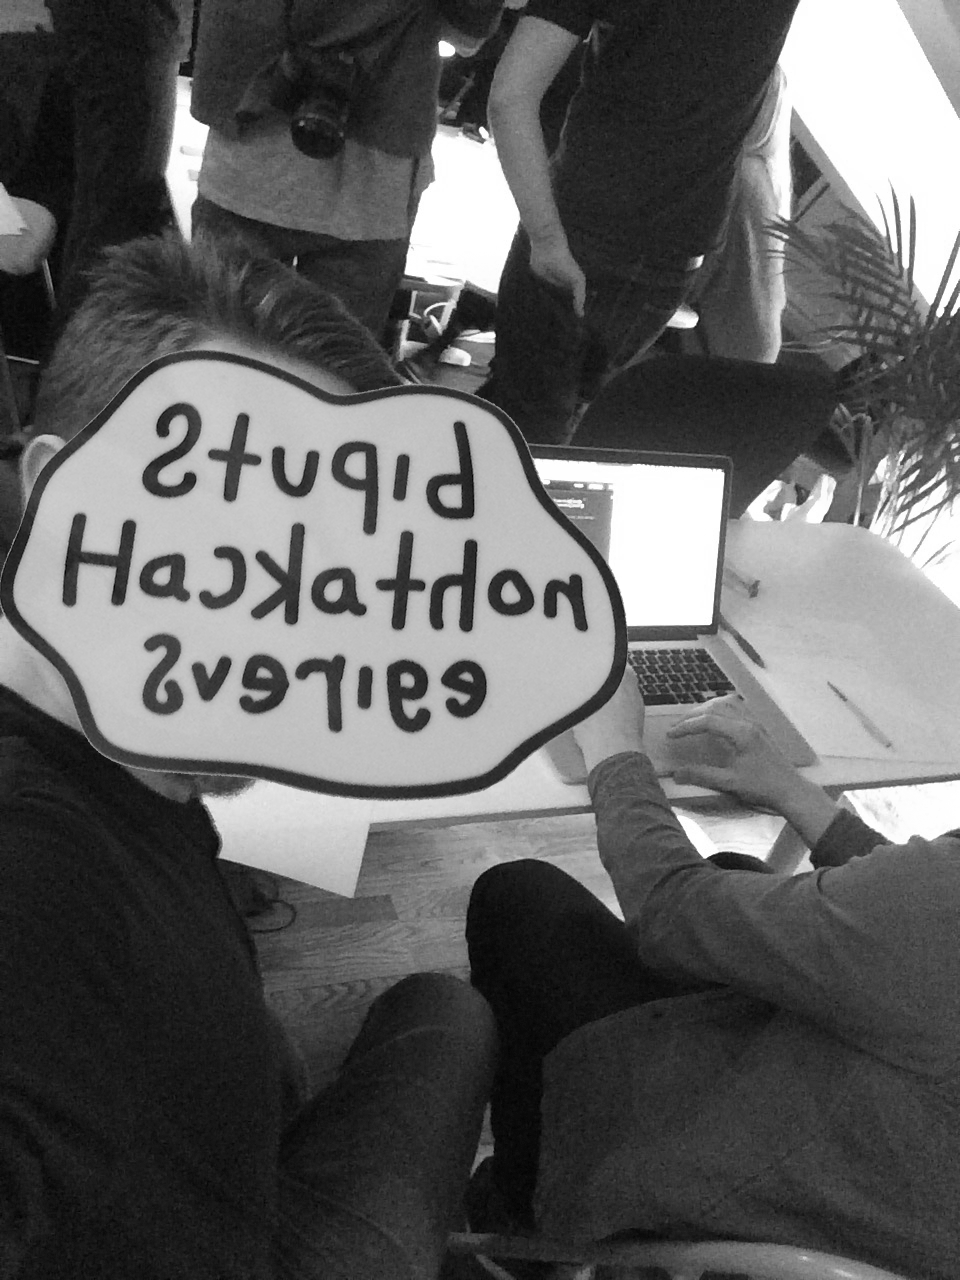 Stupid
Hackathon
Sverige